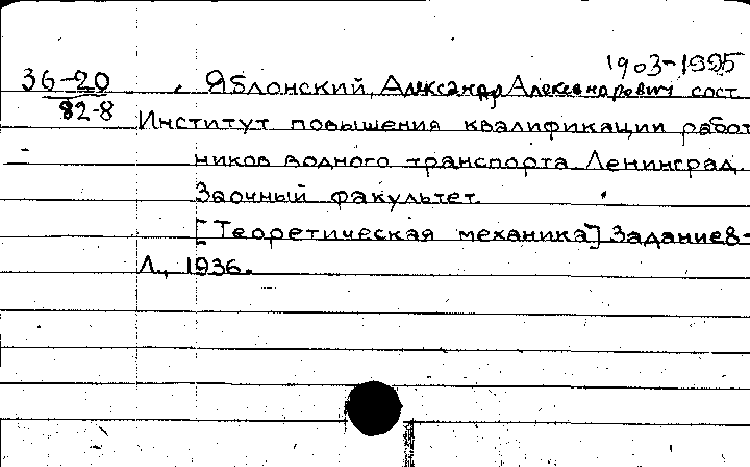 1903-1995
36-20 Яблонский, Александр Александрович сост
82-8 Институт повышения квалификации работ
ников водного транспорта Ленинград.
Заочный факультет.
[Теоретическая механика] Задание 8-
Л., 1936.